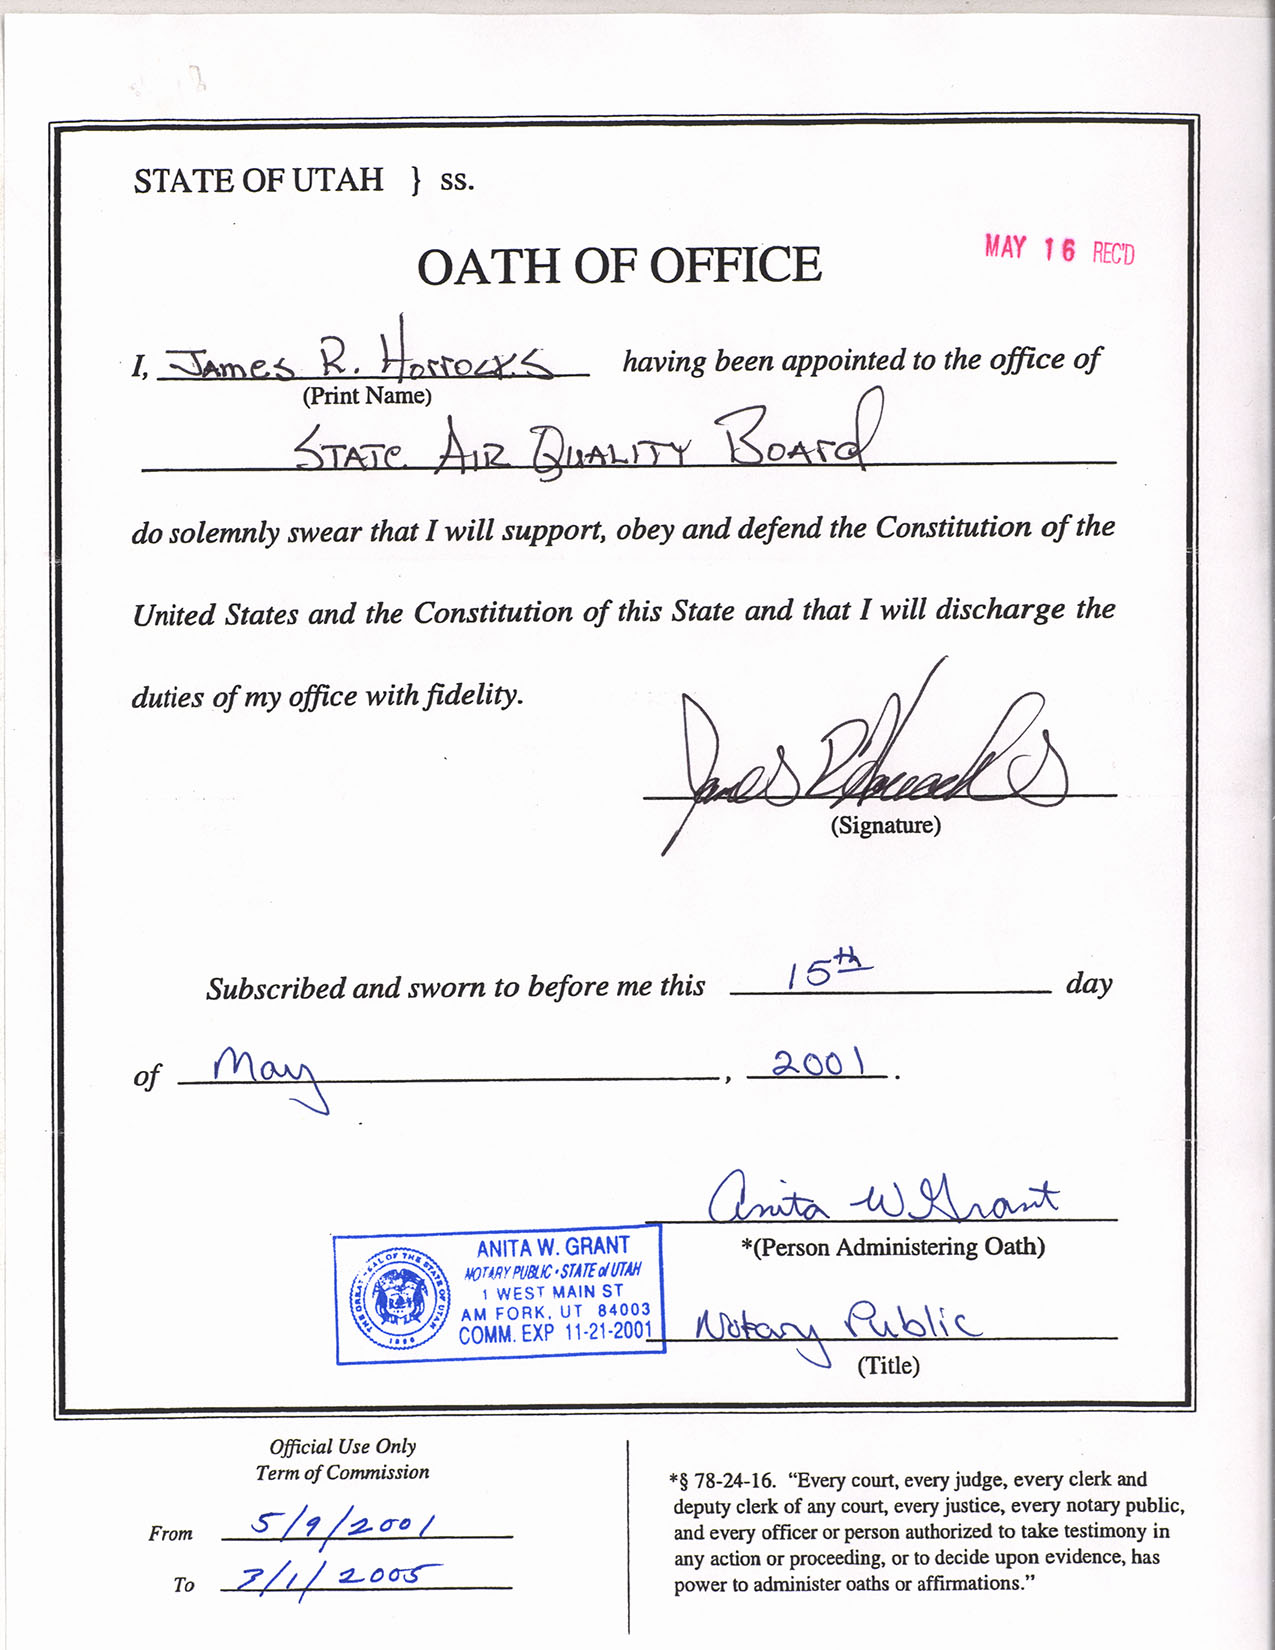 STATE OF UTAH } ss.
OATH OF OFFICE
MAY 16 REC'D
I, James R. Horrocks having been appointed to the office of
(Print Name)
State Air Quality Board
do solemnly swear that I will support, obey and defend the Constitution of the
United States and the Constitution of this State and that I will discharge the
duties of my office with fidelity.
James R Horrocks
(Signature)
Subscribed and sworn to before me this 15th day
of May, 2001.
Anita W Grant
*(Person Administering Oath)
ANITA W. GRANT
NOTARY PUBLIC • STATE of UTAH
1 WEST MAIN ST
AM FORK, UT 84003
COMM. EXP 11-21-2001
THE GREAT SEAL OF THE STATE OF UTAH
1896
Notary Public
(Title)
Official Use Only
Term of Commission
From 5/9/2001
To 3/1/2005
*§ 78-24-16. “Every court, every judge, every clerk and
deputy clerk of any court, every justice, every notary public,
and every officer or person authorized to take testimony in
any action or proceeding, or to decide upon evidence, has
power to administer oaths or affirmations.”